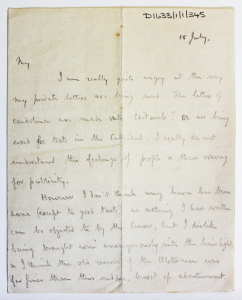 D1633/1/1/345
18 July.
My
I am really quite angry at the way
my private letters are being used. The letters of
condolence are made into Editorials! or are being
used for texts in the Cathedral. I really do not
understand the feelings of people or their craving
for publicity.
However I don't think any harm has been
done except to good taste! as nothing I have written
can be objected to by the Censor, but I dislike
being brought even anonymously into the limelight,
& I think the old service of the
far finer than this modern boast of advertisement